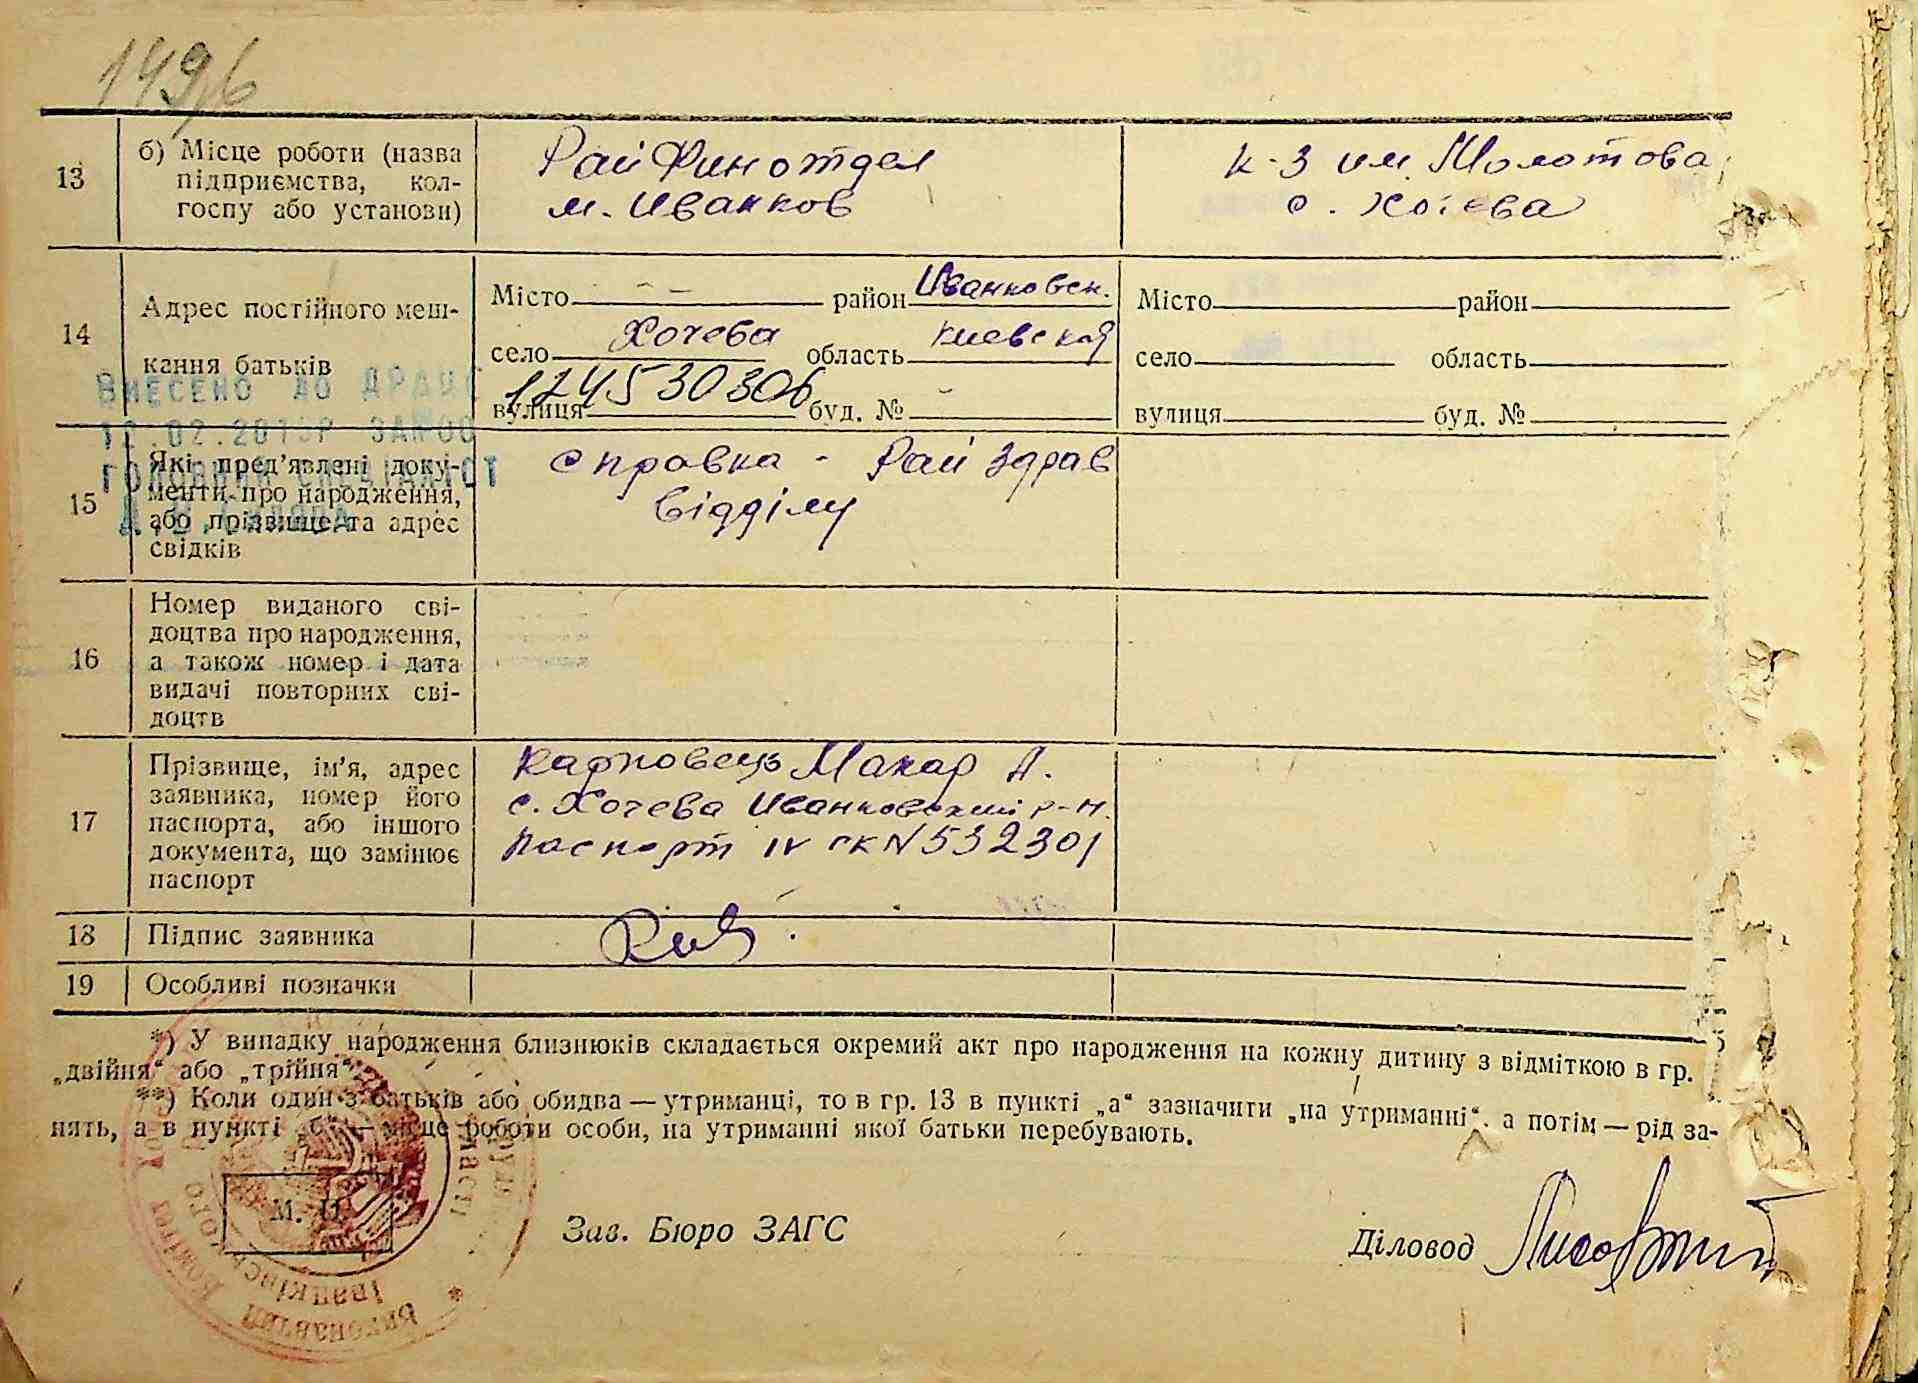 149б
13 б) Місце роботи (назва підприємства, кол-
госпу або установи)
РайФинотдел
м. Иванков
к-з им. Молотова
с. Хочева
14 Адрес постійного меш-
кання батьків
Місто район Иванковск.
село Хочева область Киевская
вулиця 124530306 буд. №
Місто район
село область
вулиця буд. №
ВНЕСЕНО ДО ДРАЦС
ГОЛОВНИЙ СПЕЦІАЛІСТ
15 Які пред'явлені доку-
менти про народження,
або прізвище та адрес
свідків
справка - Райздрав
відділу
16 Номер виданого сві-
доцтва про народження,
а також номер і дата
видачі повторних сві-
доцтв
17 Прізвище, ім'я, адрес
заявника, номер його
паспорта, або іншого
документа, що замінює
паспорт
Карповець Макар А.
с. Хочева Иванковский р-н.
паспорт IV СК N 532301
18 Підпис заявника
19 Особливі позначки
*) У випадку народження близнюків складається окремий акт про народження на кожну дитину з відміткою в гр. 5
„двійня“ або „трійня“.
**) Коли один з батьків або обидва — утриманці, то в гр. 13 в пункті „а“ зазначити „на утриманні“, а потім — рід за-
нять, а в пункті „б“ — місце роботи особи, на утриманні якої батьки перебувають.
М. П.
Зав. Бюро ЗАГС
Діловод
Виконавчий Комітет
Іванківського